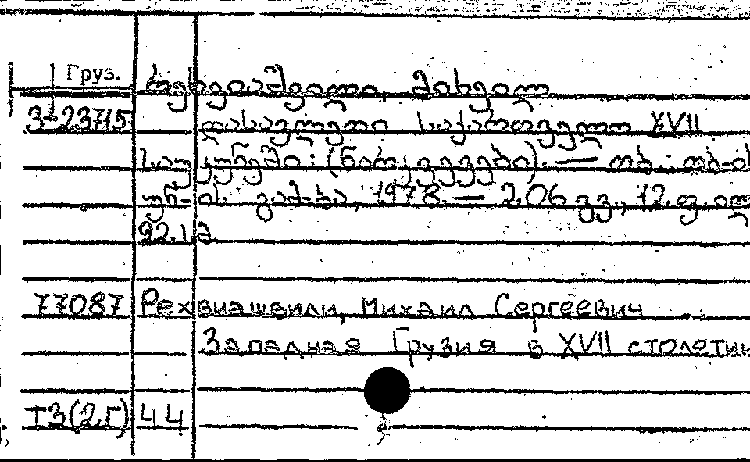 Груз.
რეხვიაშვილი, მიხეილ
3-23715 დასავლეთი საქართველო XVII
საუკუნეში: (ნარკვევები). — თბ.: თბ-ის
უნ-ის გამ-ბა, 1978. — 206 გვ., 12.ფ.ილ
22.1 მ.
77087 Рехвиашвили, Михаил Сергеевич
Западная Грузия в XVII столетии
Т3(2Г) 44